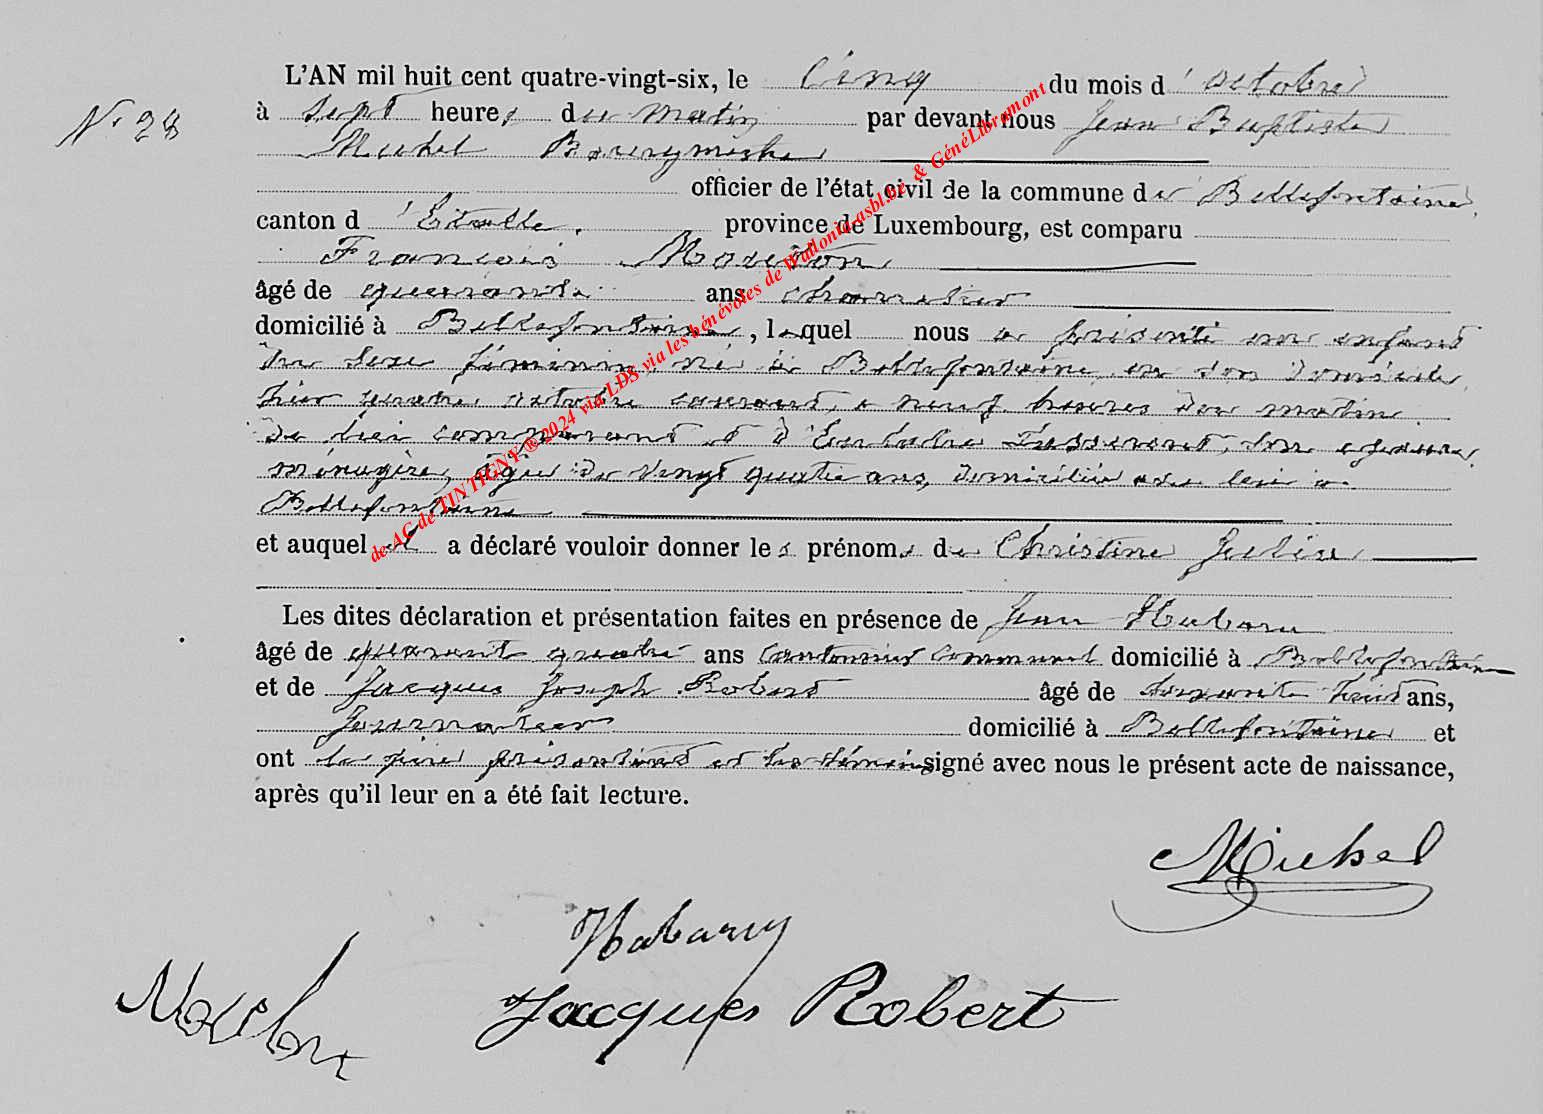 N° 28
L'AN mil huit cent quatre-vingt-six, le Cinq du mois d'octobre
à sept heures du matin par devant nous Jean Baptiste
Michel Bourgmestre
officier de l'état civil de la commune de Bellefontaine,
canton d'Etalle. province de Luxembourg, est comparu
François
âgé de quarante ans charretier
domicilié à Bellefontaine, lequel nous a présenté un enfant
du sexe féminin, né à Bellefontaine, en son domicile,
hier quatre octobre courant, à neuf heures du matin
de lui comparant et d' son épouse,
ménagère, âgée de vingt quatre ans, domiciliée avec lui à
Bellefontaine
et auquel il a déclaré vouloir donner les prénoms de Christine Julie
Les dites déclaration et présentation faites en présence de Jean Habaru
âgé de quarante quatre ans Cantonnier communal domicilié à Bellefontaine
et de Jacques Joseph Robert âgé de soixante huit ans,
Journalier domicilié à Bellefontaine et
ont le père présentant et les témoins signé avec nous le présent acte de naissance,
après qu'il leur en a été fait lecture.
Michel
Habaru
Jacques Robert
de AC de TINTIGNY ® 2024 via LDS via les bénévoles de Wallonia asbl.be & GénéLibramont